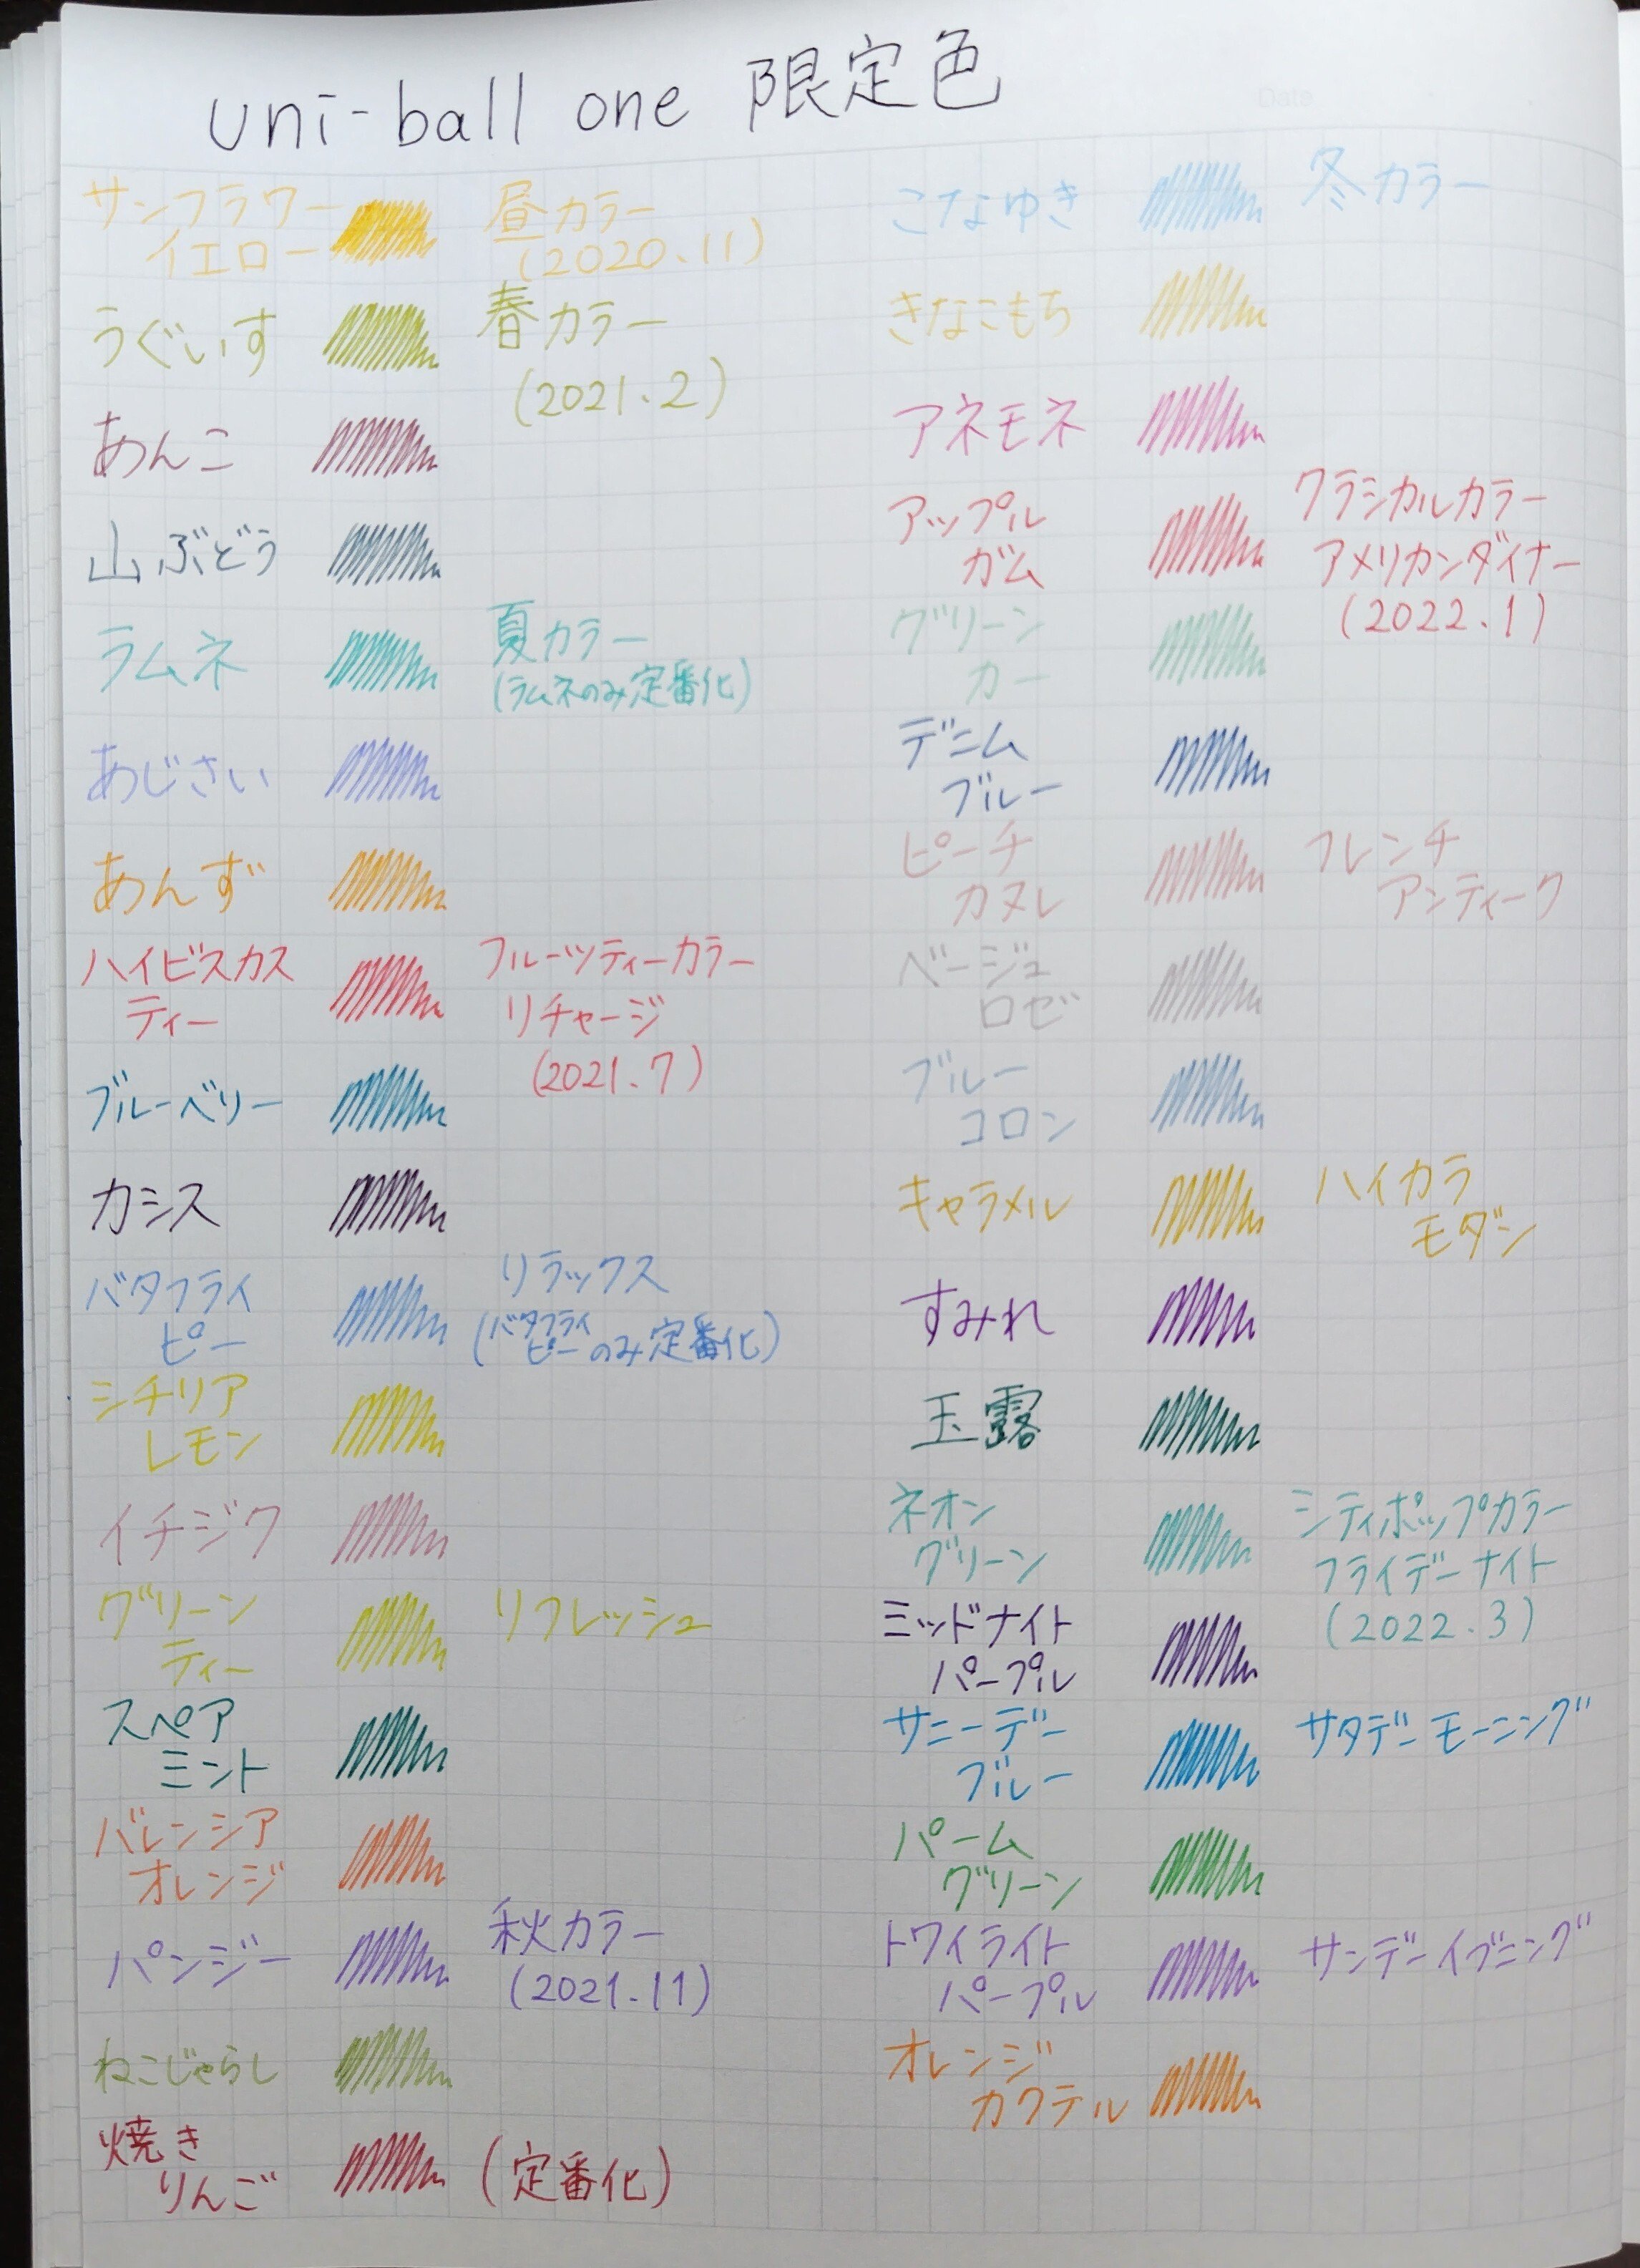 uni-ball one 限定色
サンフラワー
イエロー
昼カラー
(2020.11)
うぐいす
春カラー
(2021.2)
あんこ
山ぶどう
ラムネ
夏カラー
(ラムネのみ定番化)
あじさい
あんず
ハイビスカス
ティー
フルーツティーカラー
リチャージ
(2021.7)
ブルーベリー
カシス
バタフライ
ピー
リラックス
(バタフライ
ピーのみ定番化)
シチリア
レモン
イチジク
グリーン
ティー
リフレッシュ
スペア
ミント
バレンシア
オレンジ
パンジー
秋カラー
(2021.11)
ねこじゃらし
焼き
りんご
(定番化)
こなゆき
冬カラー
きなこもち
アネモネ
アップル
ガム
クラシカルカラー
アメリカンダイナー
(2022.1)
グリーン
カー
デニム
ブルー
ピーチ
カヌレ
フレンチ
アンティーク
ベージュ
ロゼ
ブルー
コロン
キャラメル
ハイカラ
モダン
すみれ
玉露
ネオン
グリーン
シティポップカラー
フライデーナイト
(2022.3)
ミッドナイト
パープル
サニーデー
ブルー
サタデーモーニング
パーム
グリーン
トワイライト
パープル
サンデーイブニング
オレンジ
カクテル
Date